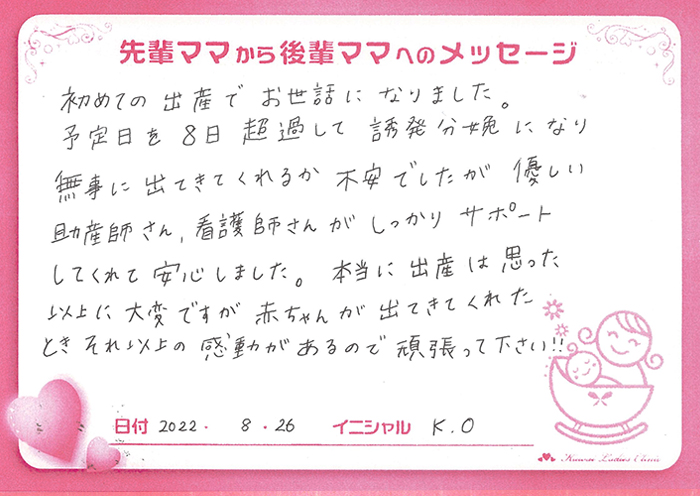 先輩ママから後輩ママへのメッセージ
初めての出産でお世話になりました。
予定日を8日超過して誘発分娩になり
無事に出てきてくれるか不安でしたが優しい
助産師さん,看護師さんがしっかりサポート
してくれて安心しました。本当に出産は思った
以上に大変ですが赤ちゃんが出てきてくれた
ときそれ以上の感動があるので頑張って下さい!!
日付 2022. 8.26 イニシャル K.O
Ladies Clinic